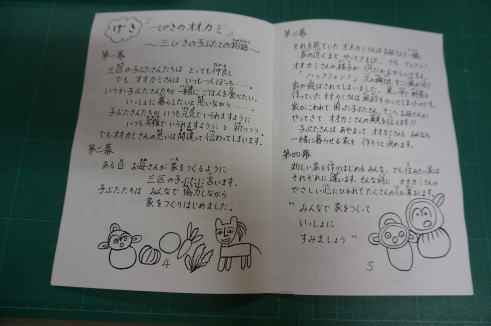 げき
"一ぴきのオオカミ"
～三びきの子ぶたとの物語～
第一幕
三匹の子ぶたさんたちは とっても仲良し
でも オオカミさんは いつも一人ぼっち……。
いつか子ぶたさんたちと 一緒に ごはんを食べたい。
いっしょに暮らしたいと思いながら……。
子ぶたさんたちが いつも元気でいられますように
いつも笑顔でいられますように と 祈りつつ
でもオオカミさんの思いは間違って伝わってしまいます。
第二幕
ある日 お母さんが 家をつくるように
三匹の子ぶたに言います。
子ぶたたちは みんなで 協力しながら
家をつくりはじめました。
4
第三幕
それを見ていた オオカミさんは お母さんと一緒に
家の近くまで やってきました。でも
オオカミさんの様子が
「ハックション！」
家が飛ばされてしまいました。
作っていた オオカミさんは
家がこわれて 困った子ぶたさん。そこへお母さんが
やってきて、オオカミさんの真実を伝えます!!
子ぶたさんは あやまって オオカミさん みんな
一緒に暮らせる家を 作ろうと決めます。
第四幕
新しい家を作りはじめる みんな。でも住みたい家は
それぞれに違います。そんな時に オオカミさんの
やさしい心にひかれて たくさんの
"みんなで 家をつくって
いっしょに
すみましょう"
5